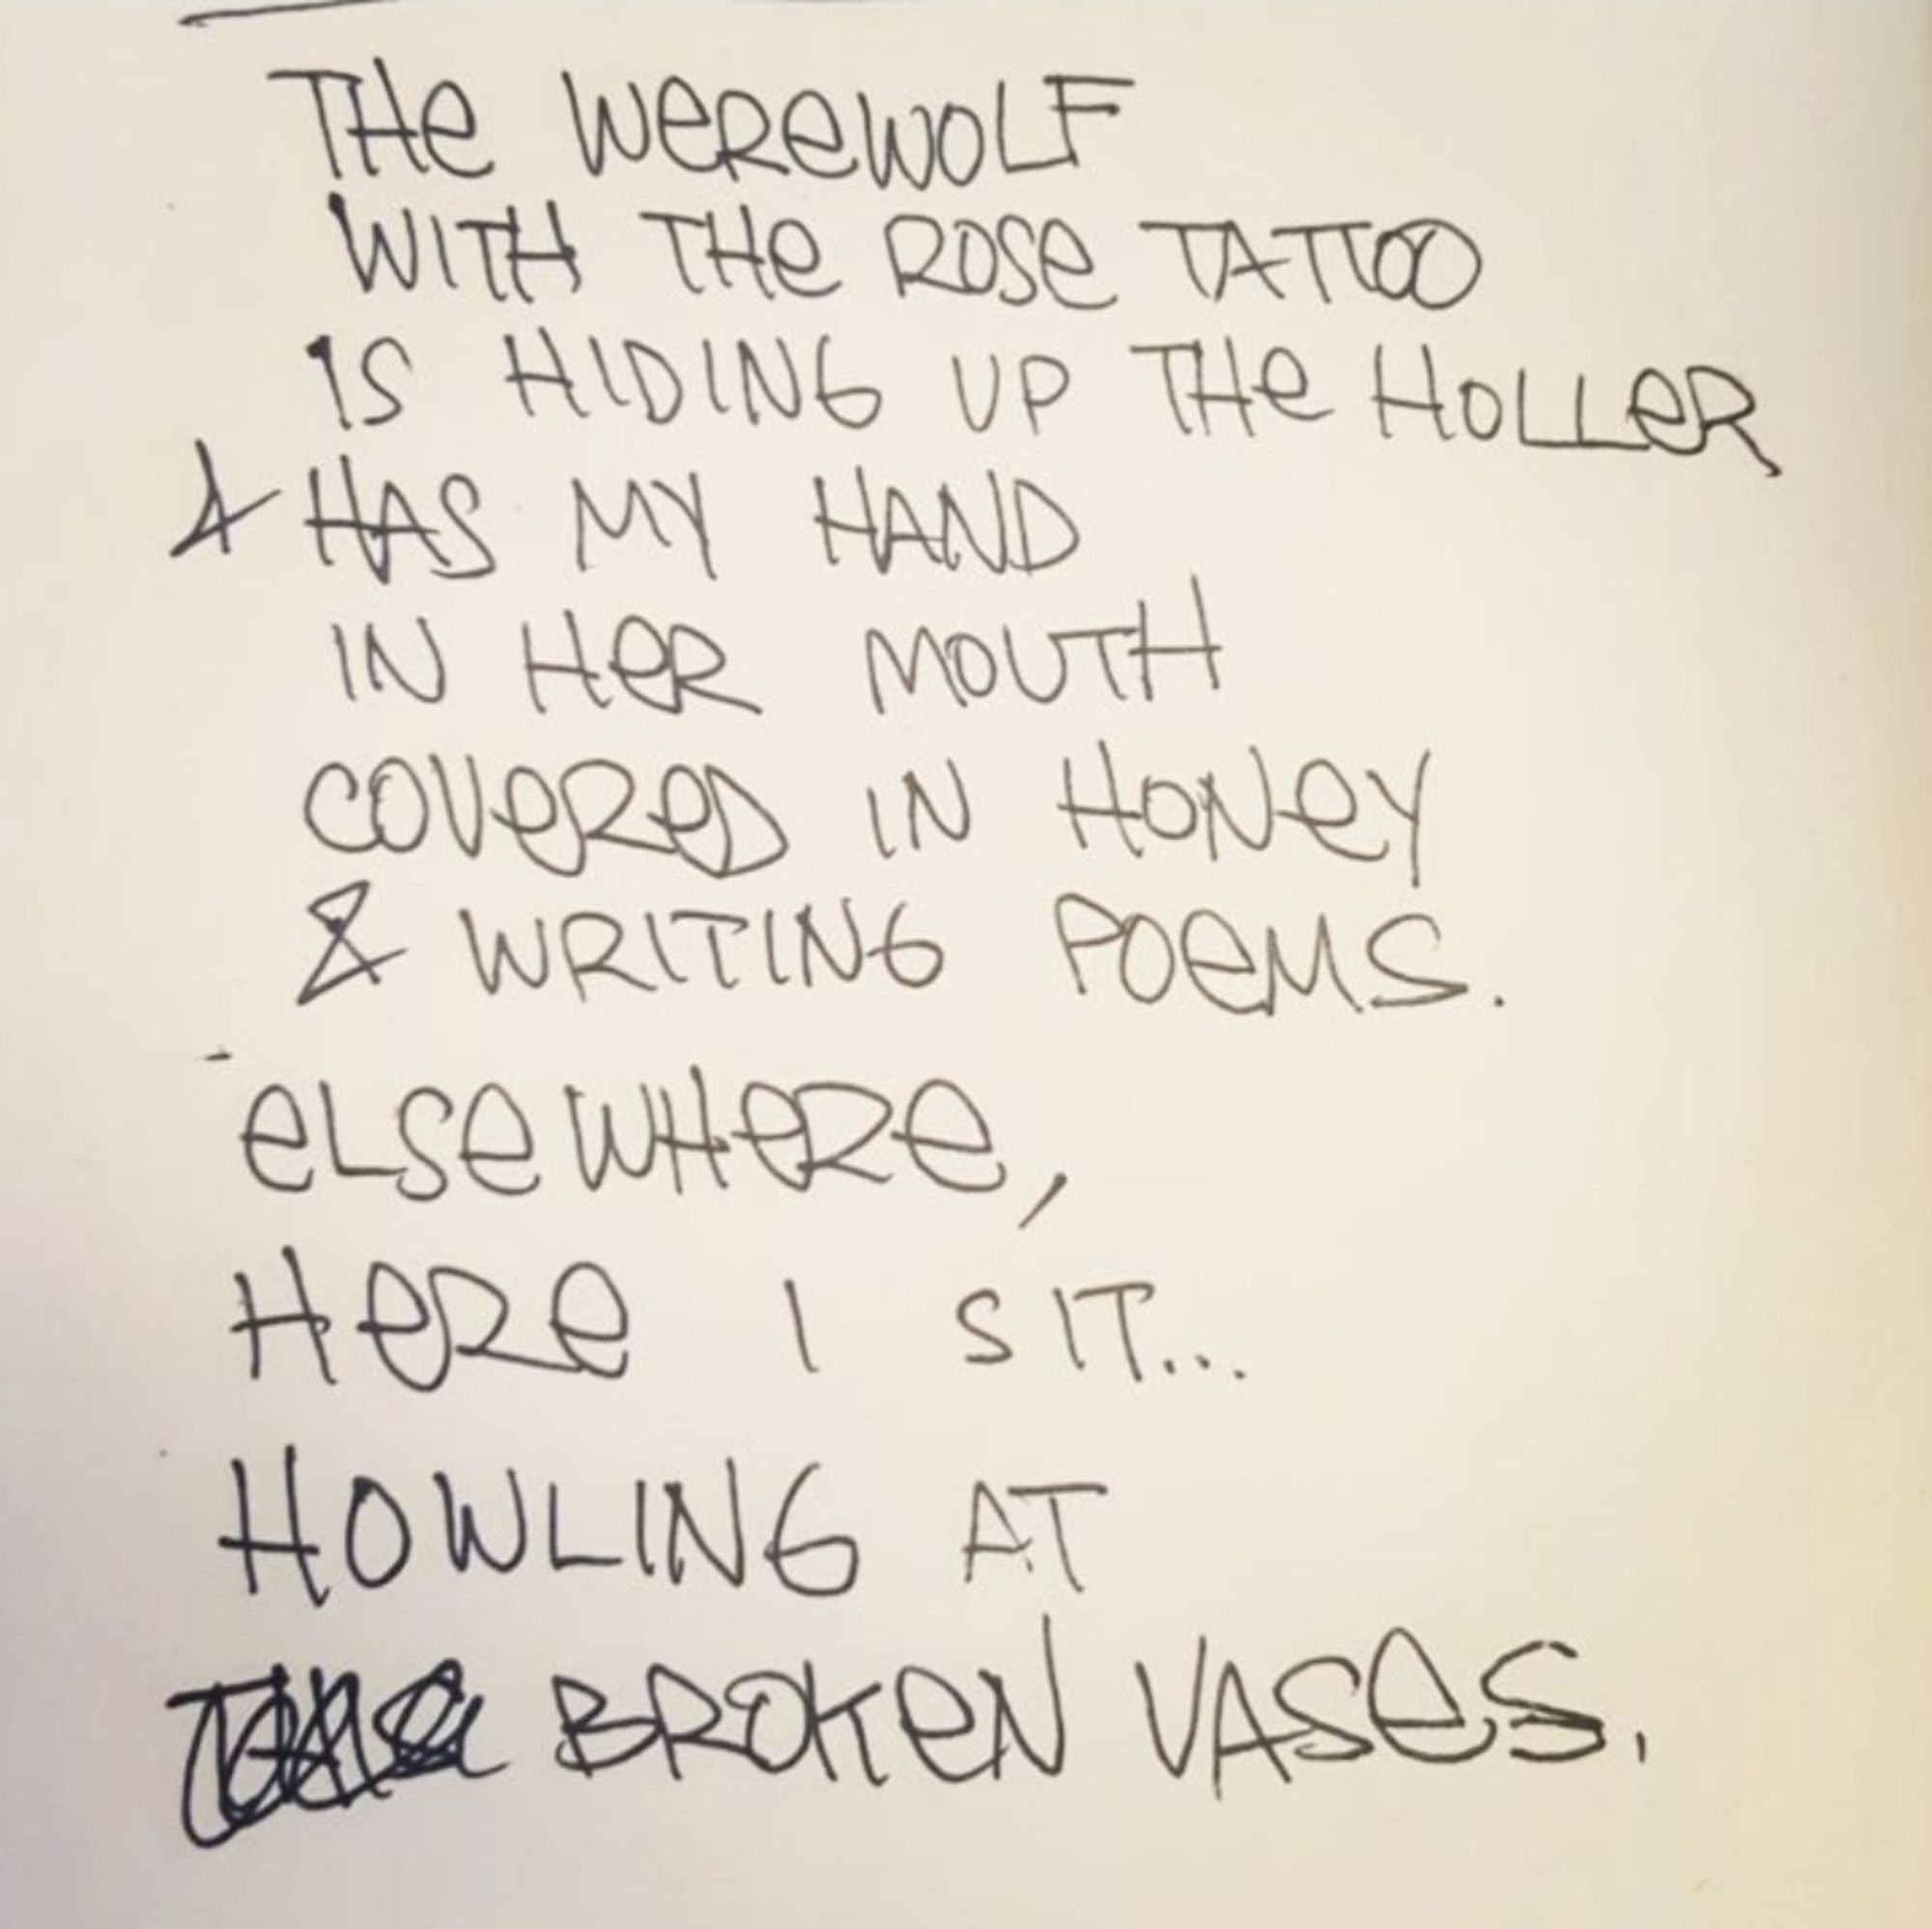 THe WeReWOLF
WITH THe ROSe TATTOO
IS HIDING UP THe HOLLeR
& HAS MY HAND
IN HeR MOUTH
COVeReD IN HONeY
& WRITING POeMS.
eLSeWHeRe,
HeRe I SIT...
HOWLING AT
BROKeN VASeS.